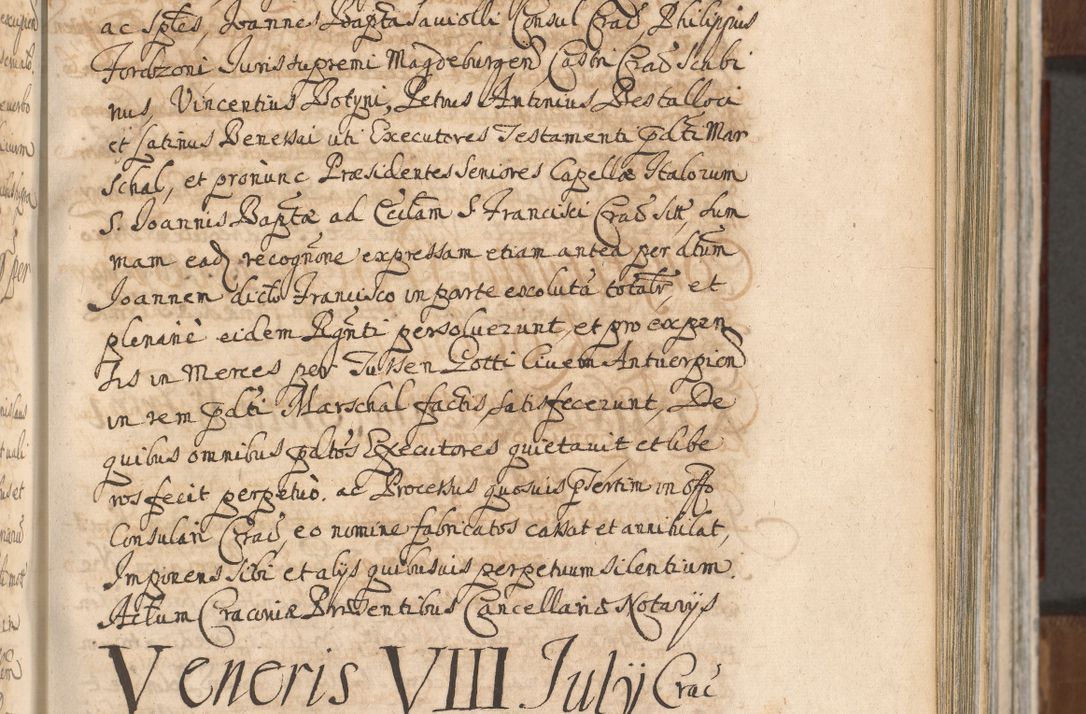 ac Sptes, Joannes Bapta Saviolli Consul Crac, Philippus
Tordzoni Juris supremi Magdeburgen Castri Crac Scabi
nus, Vincentius Botyni, Petrus Antonius Pestalloci
et Latinus Benessai uti Executores Testamenti pdti Mar
schal, et pronunc Præsidentes seniores Capellæ Italorum
S. Joannis Baptæ ad Eccliam S. Francisci Crac sitt, sum
mam ead recognõne expressam etiam antea per dtum
Joannem dicto Francisco in parte excolutã totalr, et
plenariè eidem Rgnti persoluerunt, et pro expen
sis in Merces per Jussen Gotti Civem Antuerpien
in rem pdti Marschal factis, satisfecerunt, De
quibus omnibus pdtos Executores quietavit et libe
ros fecit perpetuò. ac Processus quosuis psertim in offo
Consulari Crac, eo nomine fabricatos cassat et annihilat,
Imponens sibi et alijs quibusuis perpetuum silentium.
Actum Cracoviæ Præsentibus Cancellariæ Notarijs
Veneris VIII Julij Crac